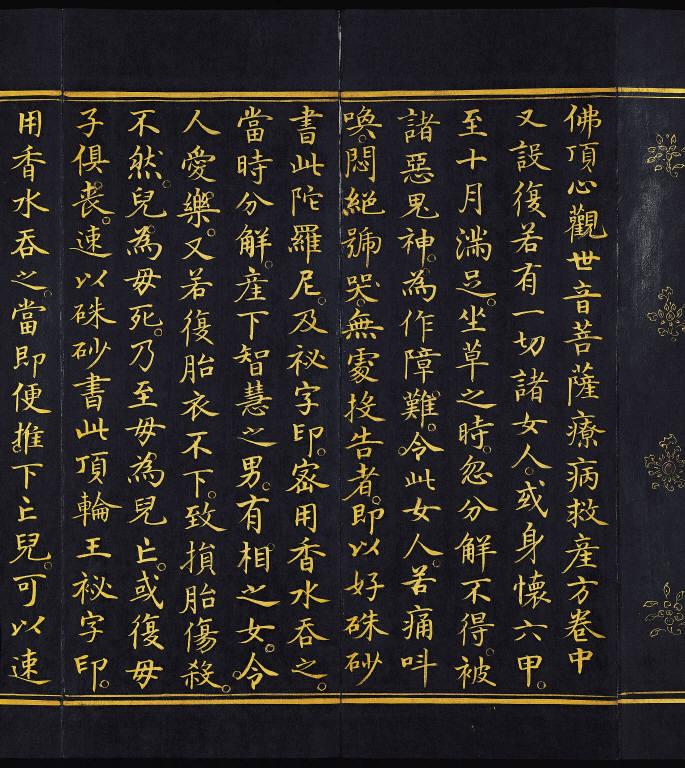 佛頂心觀世音菩薩療病救產方卷中
又設復若有一切諸女人或身懷六甲
至十月滿足坐草之時忽分解不得被
諸惡鬼神為作障難令此女人苦痛叫
喚悶絕號哭無處投告者即以好硃砂
書此陀羅尼及祕字印密用香水吞之
當時分解產下智慧之男有相之女令
人愛樂又若復胎衣不下致損胎傷殺
不然兒為母死乃至母為兒亡或復母
子俱喪速以硃砂書此頂輪王祕字印
用香水吞之當即便推下亡兒可以速